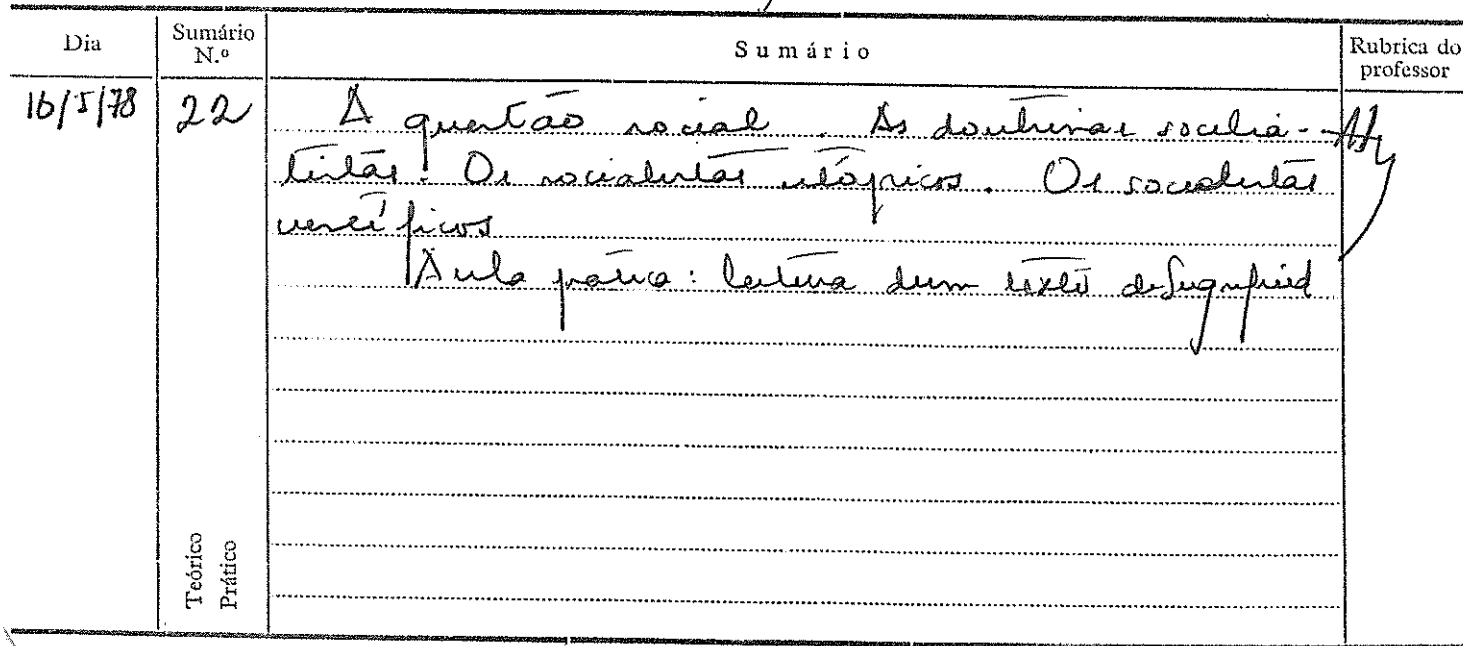 Dia
Sumário N.º
Sumário
Rubrica do professor
16/5/78
22
A questão social. As doutrinas socialis-
tas. Os socialistas utópicos. Os socialistas
científicos
Aula prática: leitura dum texto de Siegfried
Teórico
Prático